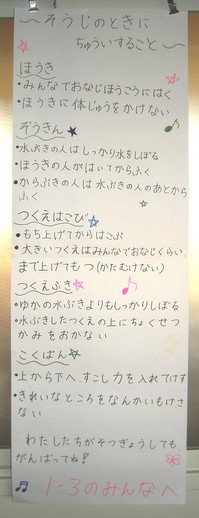 ～そうじのときに
ちゅういすること～
ほうき
・みんなでおなじほうこうにはく
・ほうきに体じゅうをかけない
ぞうきん
・水ぶきの人はしっかり水をしぼる
・ほうきの人がはいてからふく
・からぶきの人は水ぶきの人のあとから
ふく
つくえはこび
・もち上げてからはこぶ
・大きいつくえはみんなでおなじくらい
まで上げてもつ(かたむけない)
つくえふき
・ゆかの水ぶきよりもしっかりしぼる
・水ぶきしたつくえの上にちょくせつ
かみをおかない
こくばん
・上から下へ、すこし力を入れてけす
・きれいなところをなんかいもけさ
ない
わたしたちがそつぎょうしても
がんばってね!
1-3のみんなへ